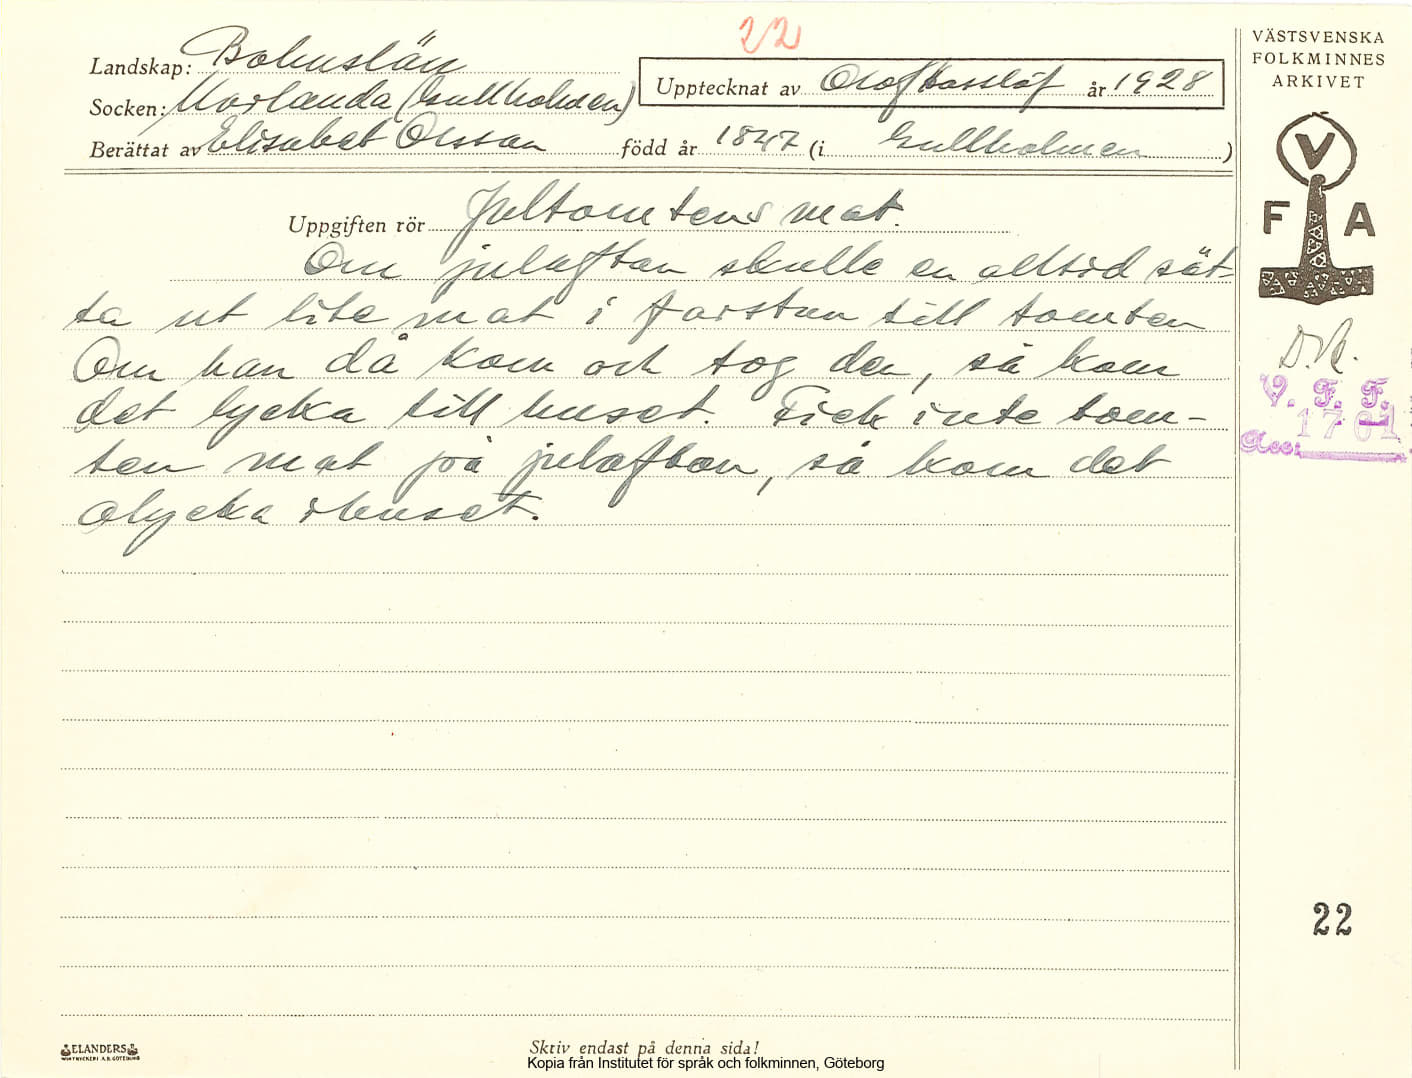 22
Landskap: Bohuslän
Socken: Morlanda (Gullholmen)
Upptecknat av Olof Hasslöf år 1928
Berättat av Elisabet Olsson född år 1847 (i Gullholmen)
Uppgiften rör Jultomtens mat.
Om julaftan skulle en alltid sät-
ta ut lite mat i farstun till tomten
Om han då kom och tog den, så kom
det lycka till huset. Fick inte tom-
ten mat på julaftan, så kom det
olycka i huset.
VÄSTSVENSKA
FOLKMINNES
ARKIVET
V
F A
V. F. F.
1761
Acc:
22
ELANDERS
Skriv endast på denna sida!
Kopia från Institutet för språk och folkminnen, Göteborg